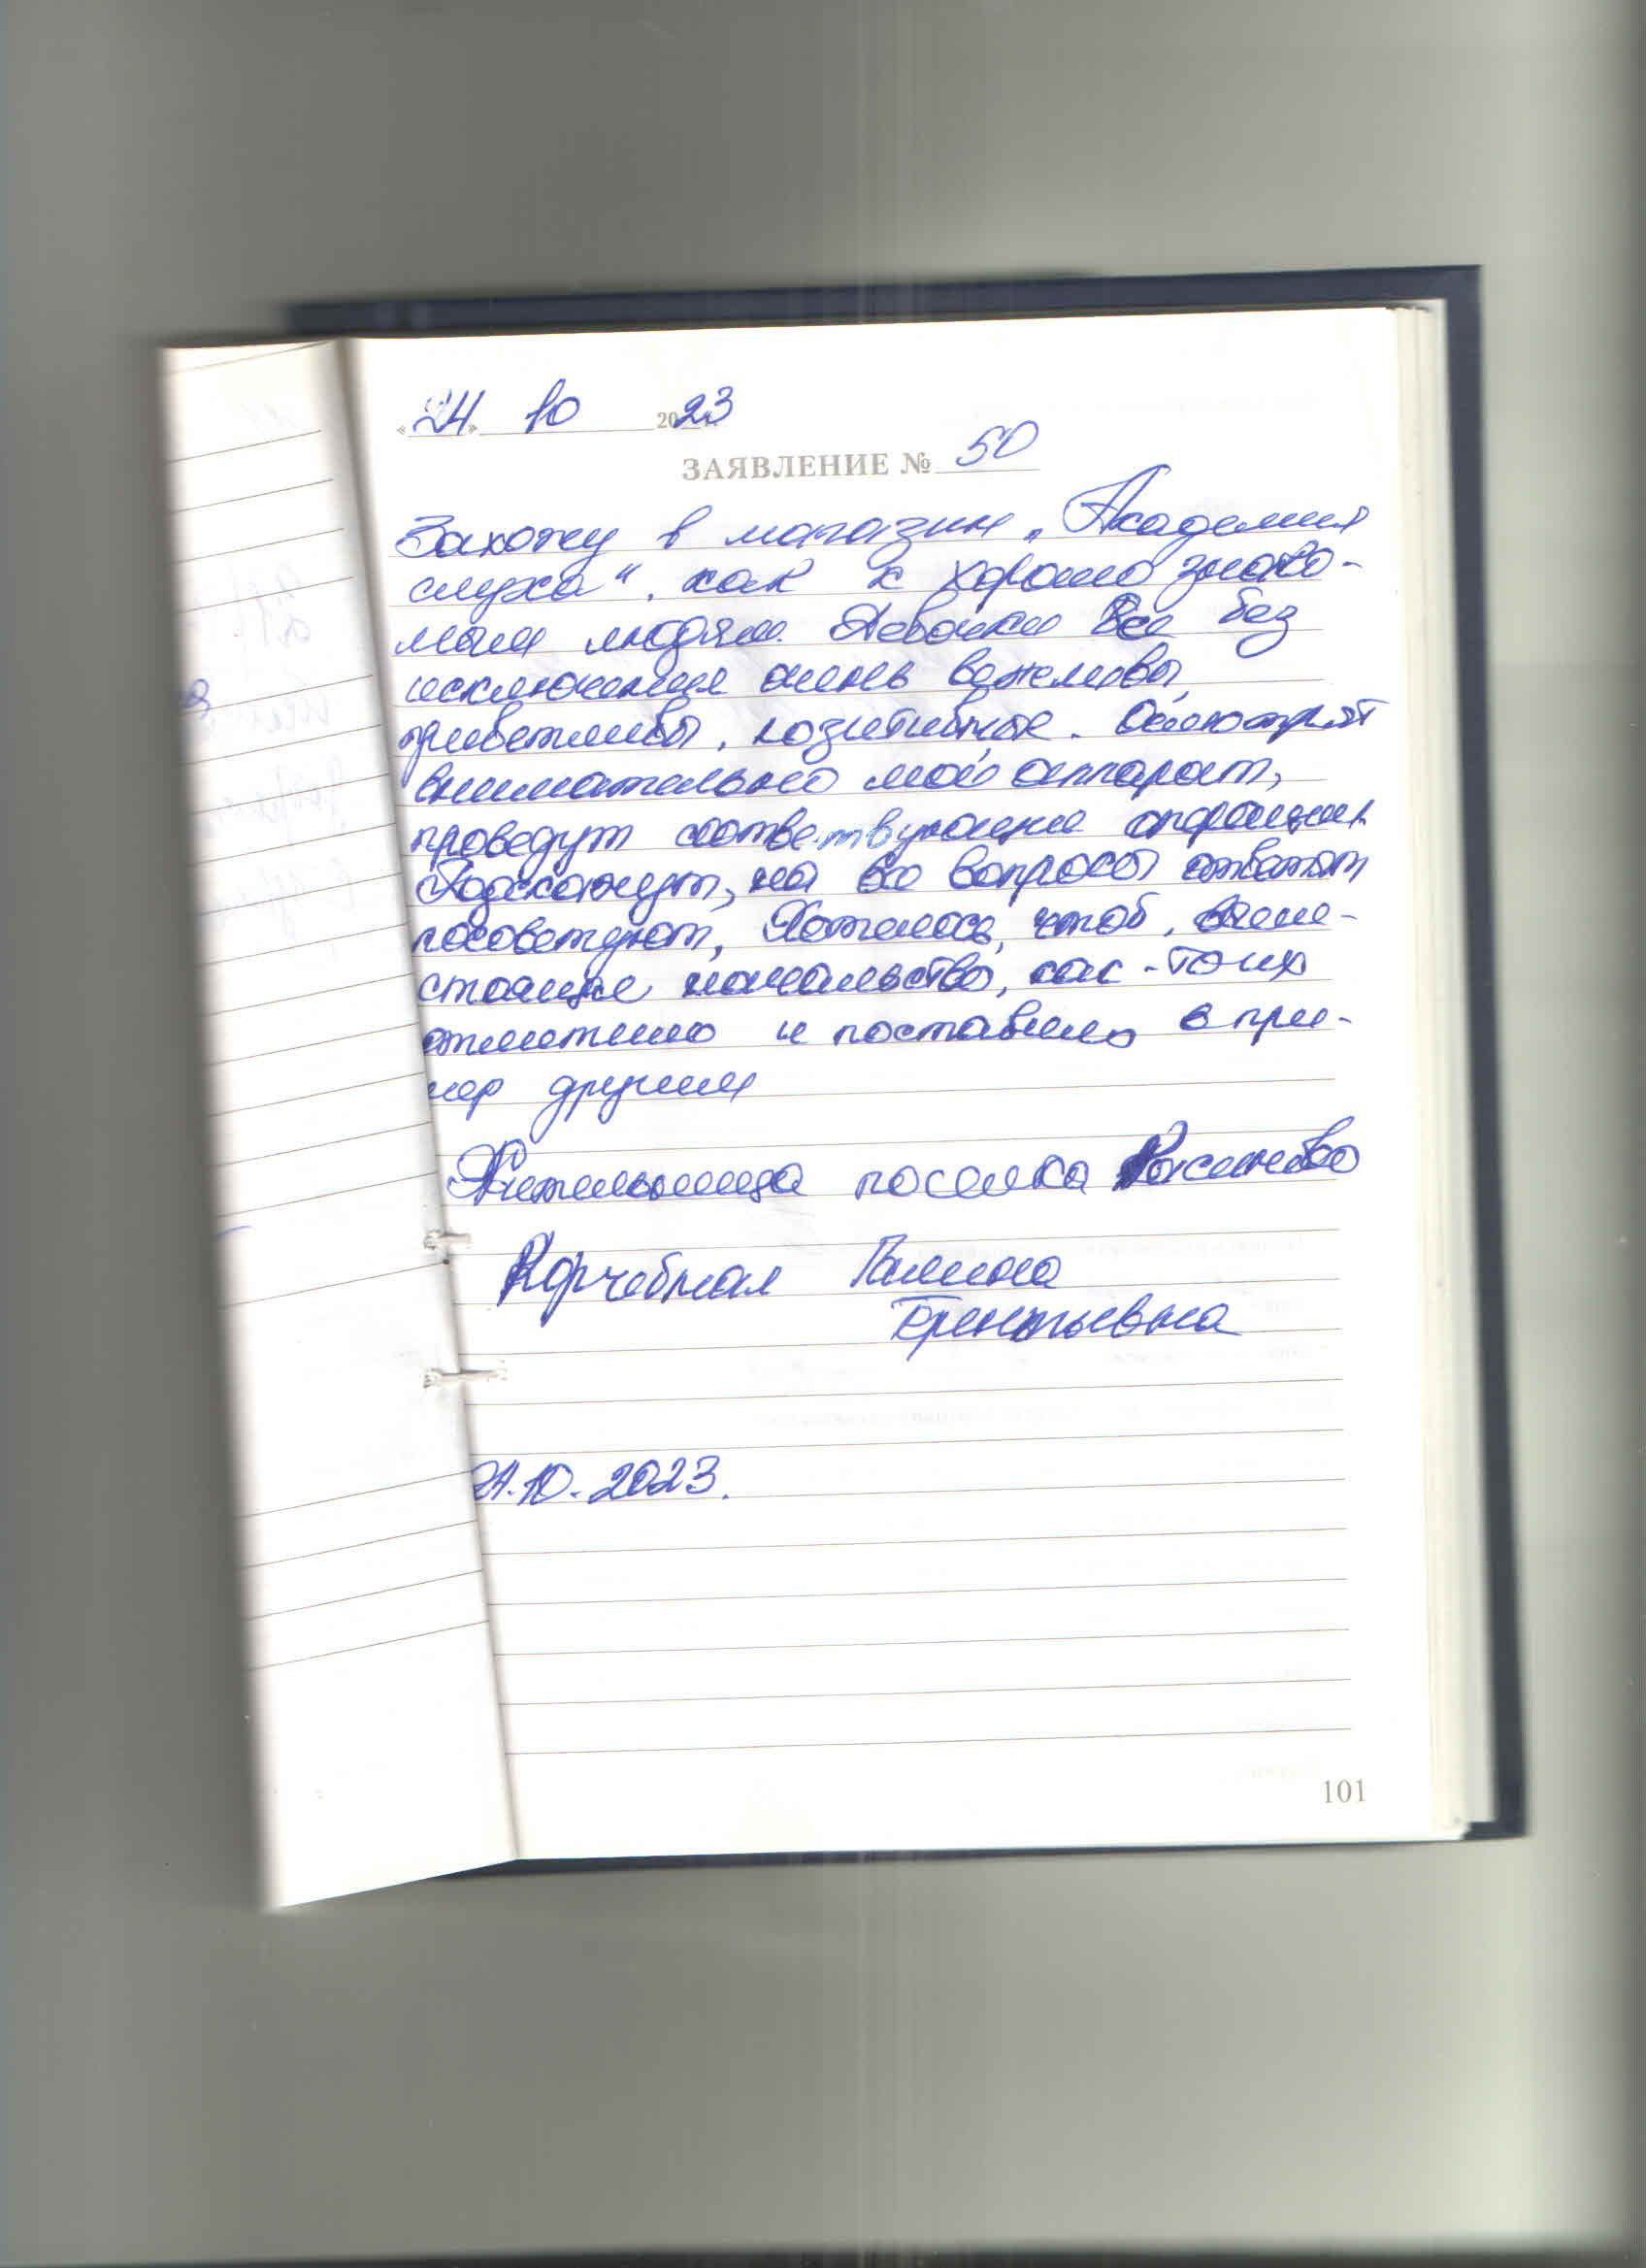 «24» 10 2023 г.
ЗАЯВЛЕНИЕ № 50
Захожу в магазин „Академия
слуха“, как к хорошо знако-
мым людям. Девочки все без
исключения очень вежливы,
приветливы, позитивные. Осмотрят
внимательно мой аппарат,
проведут соответвующие операции.
Подскажут, на все вопросы ответят
посоветуют, Хотелось, чтоб, выше-
стоящее начальство, как-то их
отметило и поставило в при-
мер другим
Жительница поселка
Корчебная Галина
Терентьевна
24.10.2023.
101